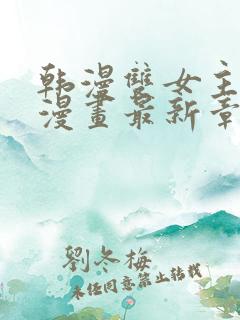 韩漫雙女主
漫畫最新章
劉冬梅
未经同意禁止转载